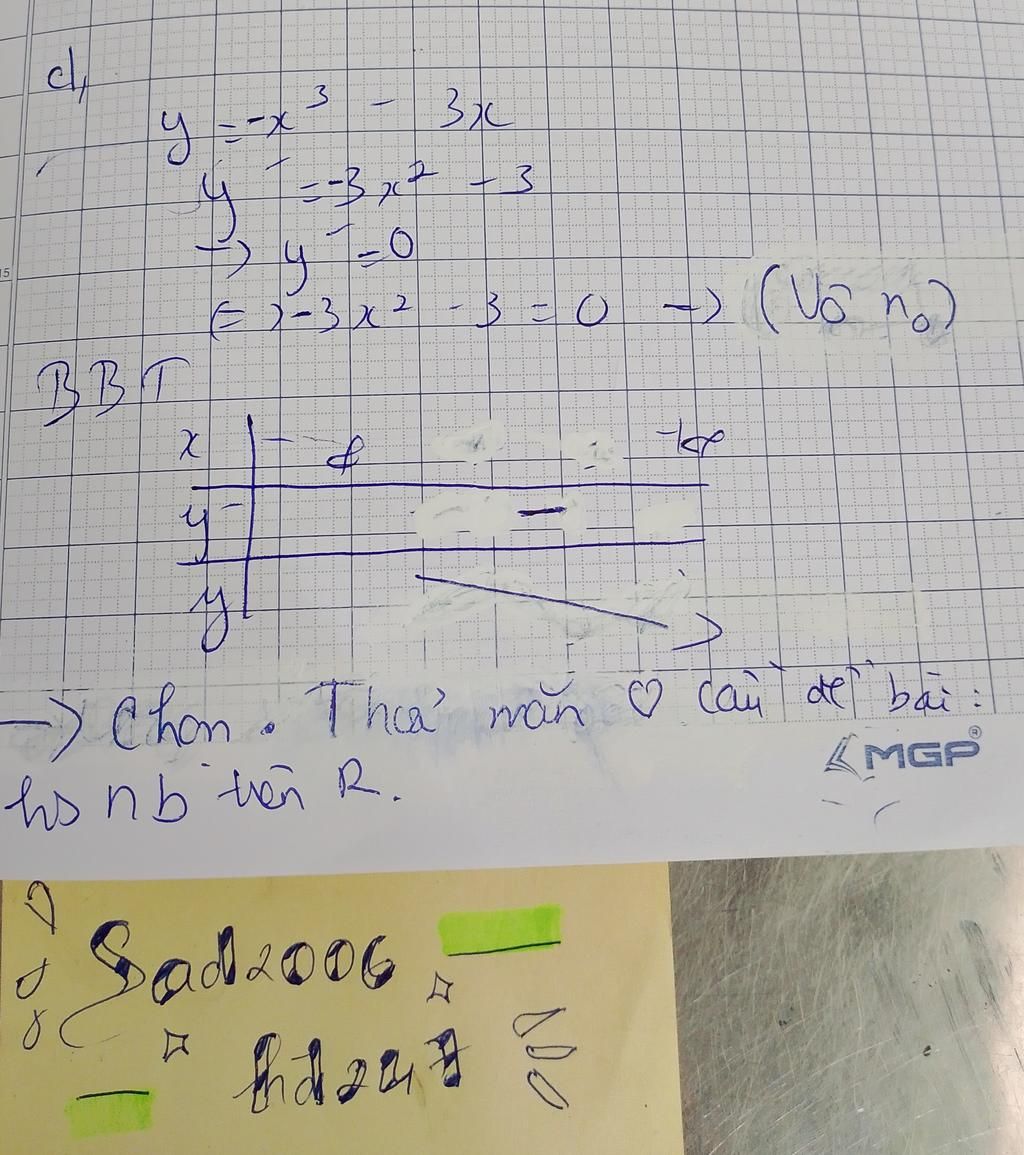 d,
y = -x³ - 3x
y' = -3x² - 3
→ y' = 0
(=) -3x² - 3 = 0 → (Vô n₀)
BBT
x -∞ +∞
y' -
y
→ Chọn. Thoả mãn ♡ cầu đề bài:
hs nb trên R.
MGP®
15
Sad2006
hd247